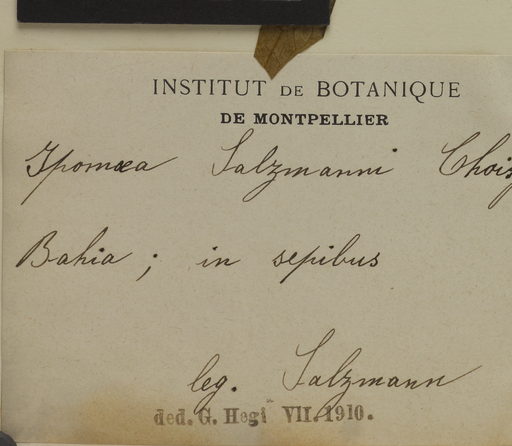 INSTITUT DE BOTANIQUE
DE MONTPELLIER
Ipomæa Salzmanni Chois
Bahia ; in sepibus
leg. Salzmann
ded. G. Hegi VII. 1910.